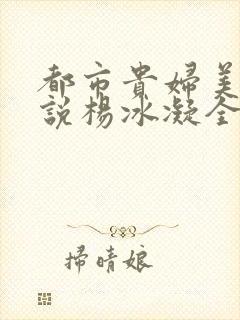 都市貴婦美
說楊冰凝全
掃晴娘